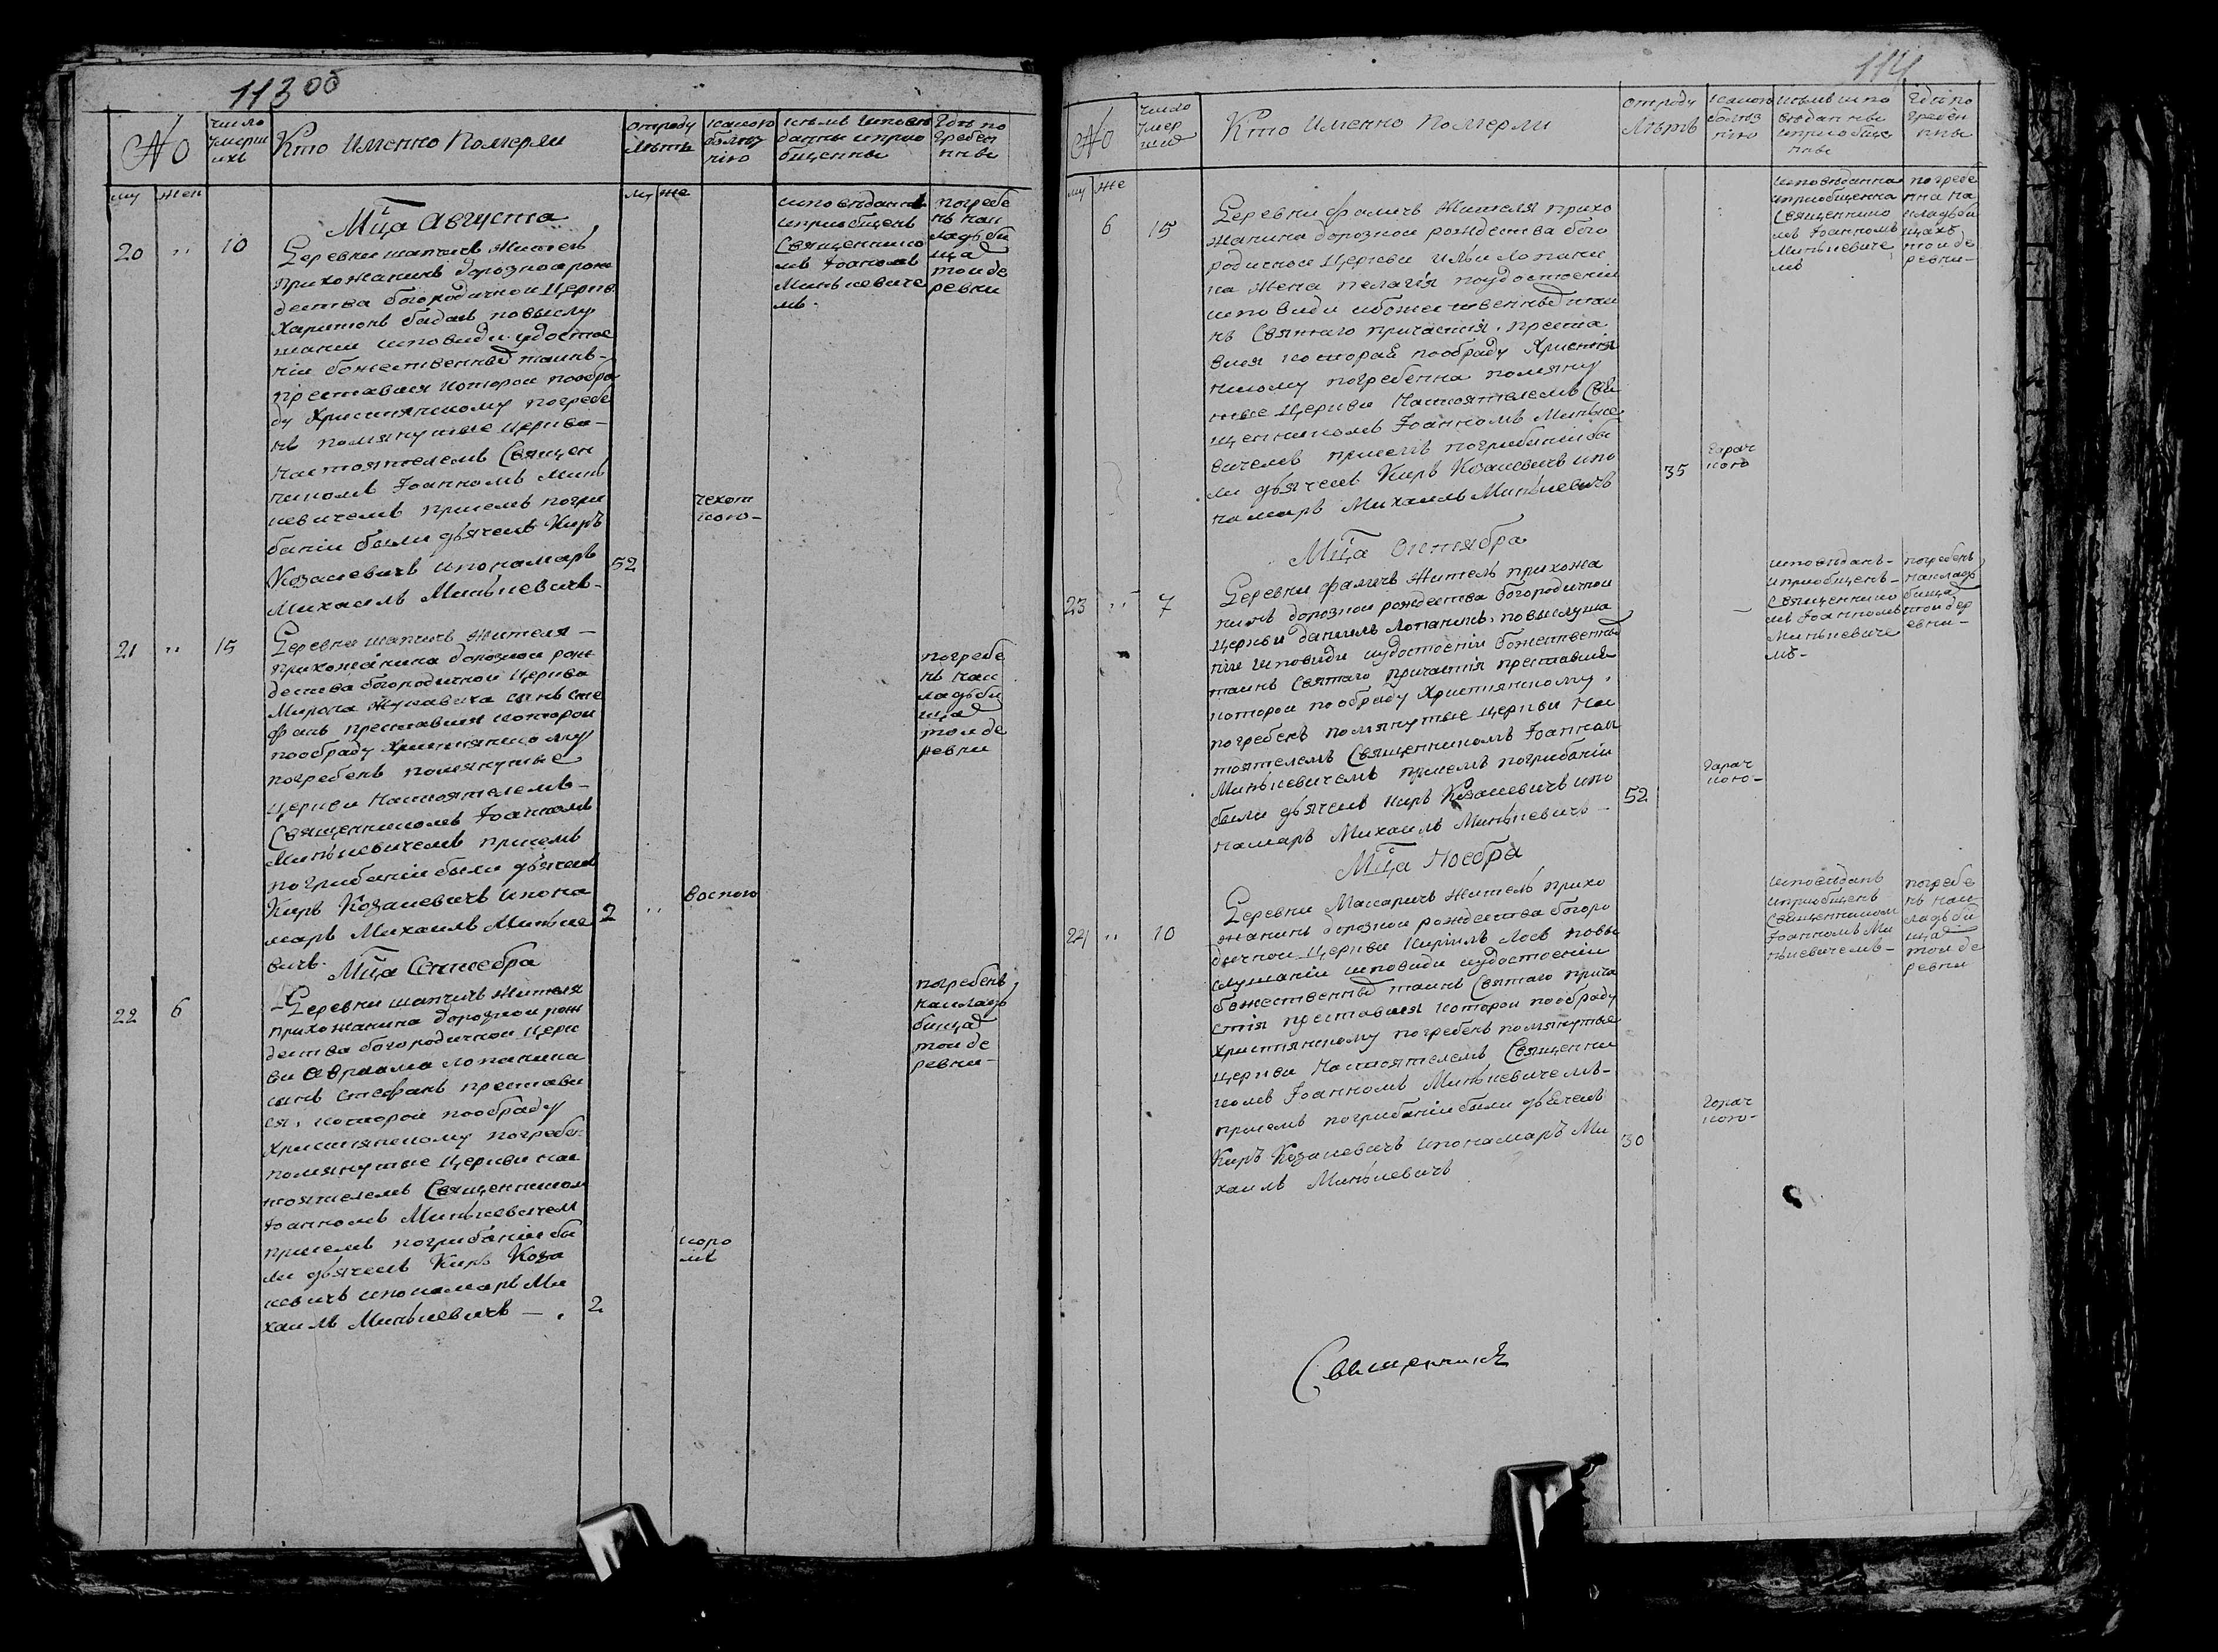 113 об
No
число
умерш
ихъ
Кто Именно Померли
отроду
Лѣтъ
какою
болѣз
нію
кемъ исповѣ
даны и прио
бщенны
Гдѣ по
гребен
нны
му жен
му же
Мца Августа
20 " 10
Деревни шапчиъ житель
прихожанинъ дорозкоя рож
дества богородичной Церкв
Харитонъ бадакъ по выслу
шании исповиди удостое
ніи божественныхъ таинъ-
преставися которой пообра
ду Християнскому погребе
нъ помянутые церкви-
настоятелемъ Священ
никомъ Іоанномъ Минь
кевичемъ присемъ погри
баніи были дьячекъ Киръ
Козакевичъ ипономаръ
Михаилъ Минькевичъ-
52
чехот
кою-
исповѣданъ
иприобщенъ
Священнико
мъ Іоаномъ
Минькевиче
мъ-
погребе
нъ нак
ладьби
щах
той де
ревни
21 " 15
Деревни шапчиъ жителя-
прихожанина дорозкой рож
дества богородичной Церкви
Мирона сынъ сте
фанъ преставися которой
пообраду Християнскому
погребенъ помянутые
церкви Настоятелемъ-
Священникомъ Іоанномъ
Минькевичемъ присемъ
погрибаніи были дьячекъ
Киръ Козакевичъ ипоно
маръ Михаилъ Минькe
вичъ.
2 "
воспою
погребе
нъ нак
ладьби
щах
той де
ревни
Мца Сентебра
22 6
Деревни шапчичъ жителя
прихожанина дорозкой рож
дества богородичной Церк
ви Авраама лопанина
сынъ Стефанъ престави
ся, которой пообраду
Християнскому погребен
помянутые Церкви нас
тоятелемъ Священником
Іоанномъ Минькевичем
присемъ погрибаніи бы
ли дьячекъ Киръ Коза
кевичъ ипономаръ Ми
хаилъ Минькевичъ-.
2
коро
мъ
погребенъ
накладь
бищах
той де
ревни-
114
No
число
умер
ших
Кто Именно Померли
отроду
Лѣтъ
какою
болѣз
нію
кемъ испо
вѣданны
иприобще
нны
Гдѣ по
гребен
нны
му же
6 15
Деревни фаличъ жителя прихо
жанина дорозкой рождества бого
родичной Церкви Ильи Лопани
на жена пелагѣя поудостоеніи
исповиди ибожественныхъ таи
нъ Святаго причастія, преста
вися которая пообраду Християн
скому погребенна помяну
тые Церкви Настоятелемъ Свя
щенникомъ Іоанномъ Минькe
вичемъ присемъ погрибаніи бы
ли дьячекъ Киръ Козакевичъ ипо
намаръ Михаилъ Минькевичъ
35
гарач
кою
исповѣданна
иприобщенна
Священнико
мъ Іоанномъ
Минькевиче
мъ
погребе
нна на
кладьби
щахъ
той де
ревни-
Мца Октября
23 " 7
Деревни фаличъ житель прихожа
нинъ дорозкой рождества богородичной
Церкви данилъ Лопанинъ, повыслуша
ніи исповиди иудостоеніи божественных
таинъ Святаго причастія преставися
которой пообраду Християнскому,
погребенъ помянутые Церкви нас
тоятелемъ Священникомъ Іоанном
Минькевичемъ присемъ погрибаніи
были дьячекъ Киръ Козакевичъ ипо
намаръ Михаилъ Минькевичъ-
52
гарач
кою-
исповѣданъ-
иприобщенъ-
Священнико
мъ Іоанномъ
Минькевиче
мъ-
погребенъ
накладь
бищах
той дер
евни-
Мца Ноебра
24 " 10
Деревни Макаричъ житель прихо
жанинъ дорозкой рождества богоро
дичной Церкви Кирилъ Лось повы
слушаніи исповиди иудостоеніи
божественныхъ таинъ Святаго прича
стія преставися которой пообраду
християнскому погребенъ помянутые
церкви Настоятелемъ Священни
комъ Іоанномъ Минькевичемъ-
присемъ погрибаніи были дьячекъ
Киръ Козакевичъ ипономаръ Ми
хаилъ Минькевичъ
30
гарач
кою-
исповѣданъ
иприобщенъ
священником
Іоанномъ Ми
нькевичемъ-
погребе
нъ нак
ладьби
щах
той де
ревни
Священникъ